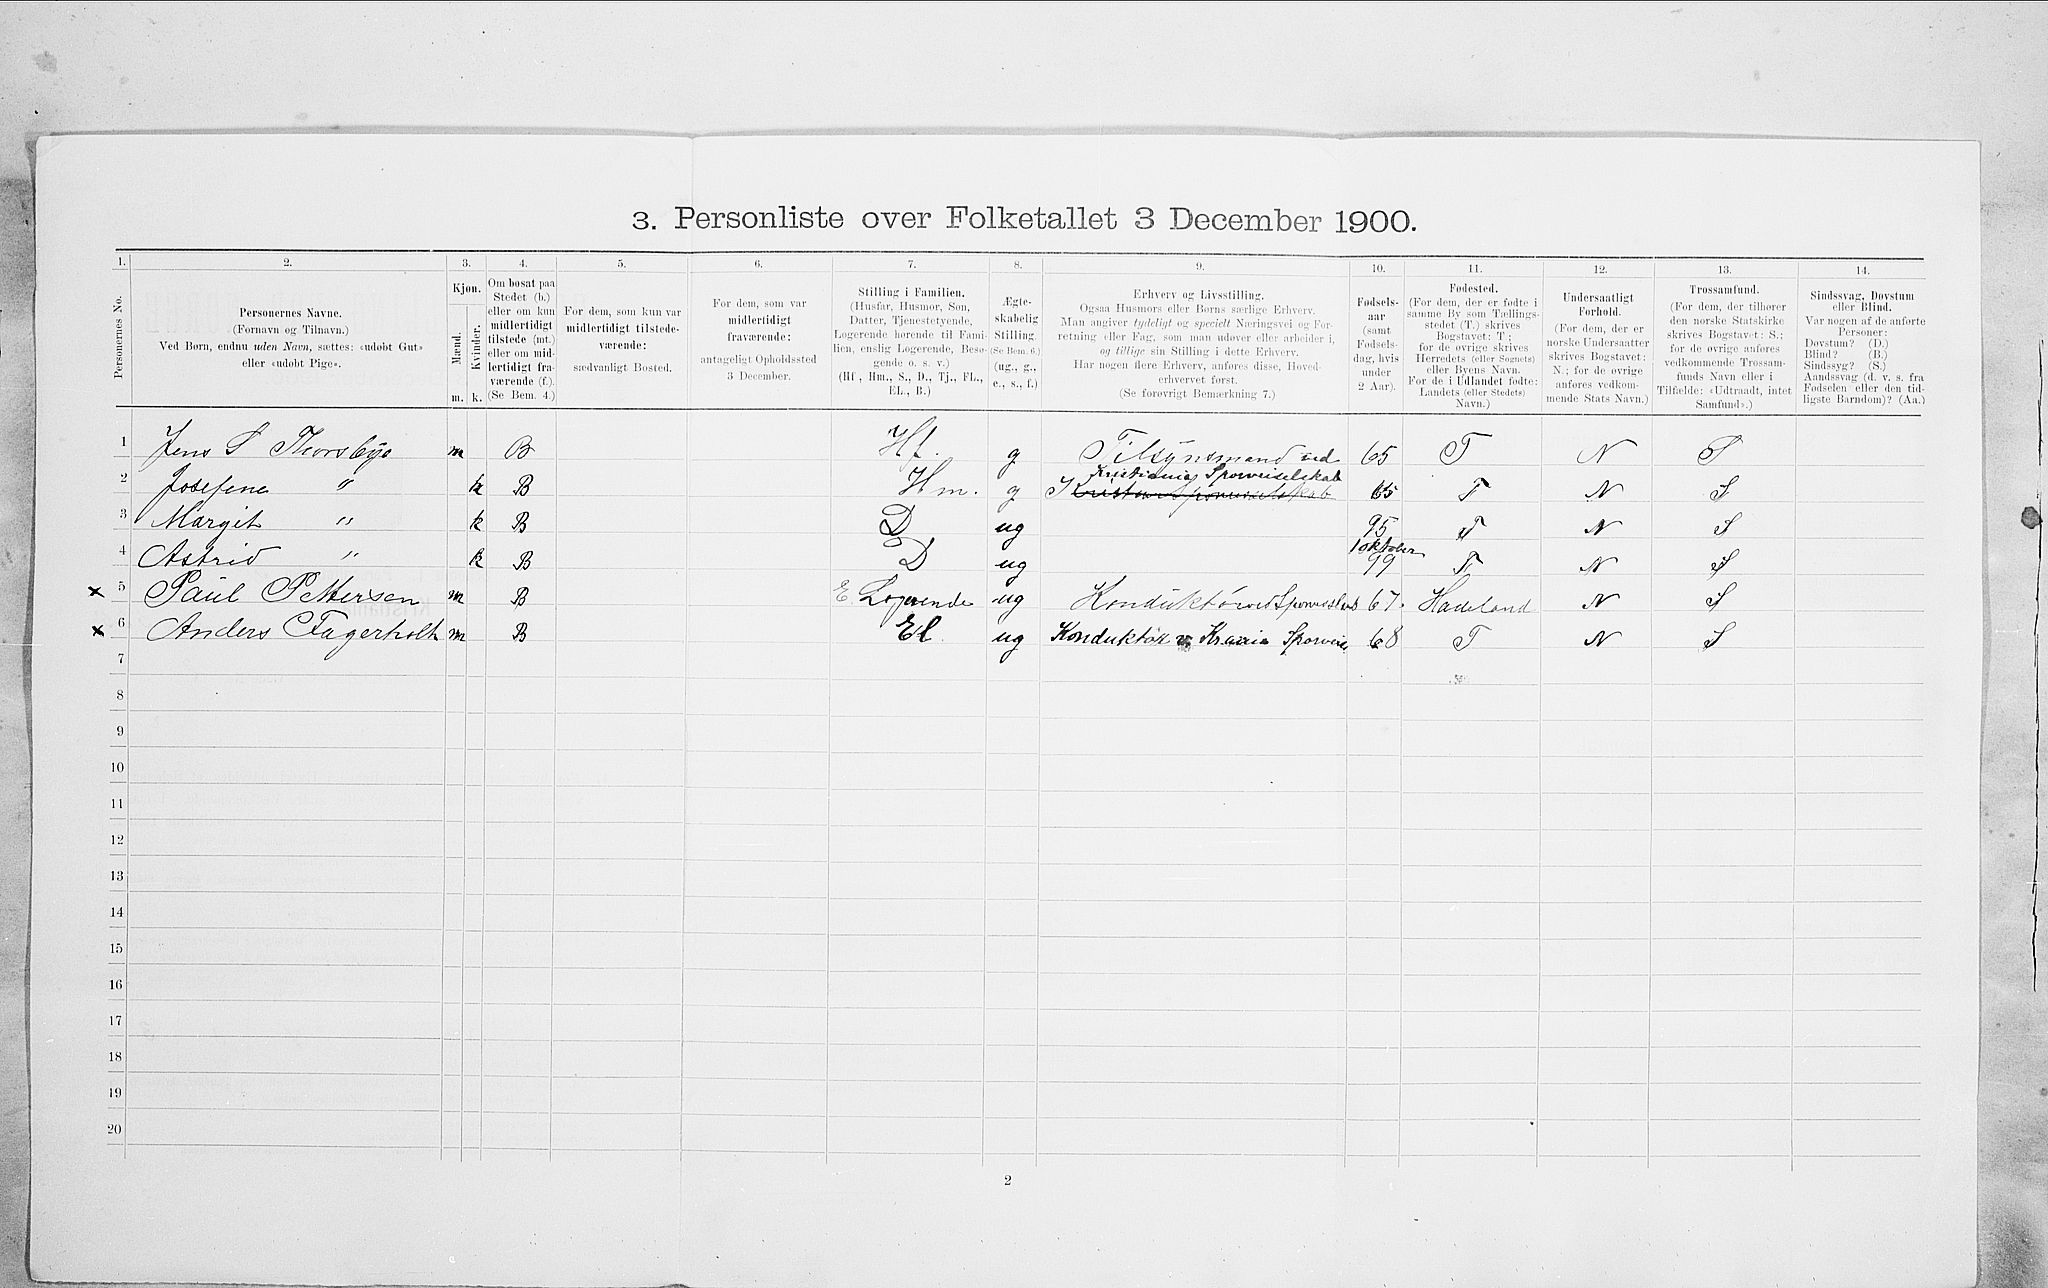 3. Personliste over Folketallet 3 December 1900.
1. 2. 3. 4. 5. 6. 7. 8. 9. 10. 11. 12. 13. 14.
Personernes No.
Personernes Navne.
(Fornavn og Tilnavn.)
Ved Børn, endnu uden Navn, sættes: «udøbt Gut»
eller «udøbt Pige».
Kjøn.
Mænd.
Kvinder.
m. k.
Om bosat paa
Stedet (b.)
eller om kun
midlertidigt
tilstede (mt.)
eller om mid-
lertidigt fra-
værende (f.).
(Se Bem. 4.)
For dem, som kun var
midlertidigt tilstede-
værende:
sædvanligt Bosted.
For dem, som var
midlertidigt
fraværende:
antageligt Opholdssted
3 December.
Stilling i Familien.
(Husfar, Husmor, Søn,
Datter, Tjenestetyende,
Logerende hørende til Fami-
lien, enslig Logerende, Besø-
gende o. s. v.)
(Hf., Hm., S., D., Tj., FL.,
EL., B.)
Ægte-
skabelig
Stilling.
(Se Bem. 6.)
(ug., g.,
e., s., f.)
Erhverv og Livsstilling.
Ogsaa Husmors eller Børns særlige Erhverv.
Man angiver tydeligt og specielt Næringsvei og For-
retning eller Fag, som man udøver eller arbeider i,
og tillige sin Stilling i dette Erhverv.
Har nogen flere Erhverv, anføres disse, Hoved-
erhvervet først.
(Se forøvrigt Bemærkning 7.)
Fødsels-
aar
(samt
Fødsels-
dag, hvis
under
2 Aar).
Fødested.
(For dem, der er fødte i
samme By som Tællings-
stedet (T.) skrives
Bogstavet: T.;
for de øvrige skrives
Herredets (eller Sognets)
eller Byens Navn.
For de i Udlandet fødte:
Landets (eller Stedets)
Navn.)
Undersaatligt
Forhold.
(For dem, der er
norske Undersaatter
skrives Bogstavet:
N.; for de øvrige
anføres vedkom-
mende Stats Navn.)
Trossamfund.
(For dem, der tilhører
den norske Statskirke
skrives Bogstavet: S.;
for de øvrige anføres
vedkommende Trossam-
funds Navn eller i
Tilfælde: «Udtraadt, intet
Samfund».)
Sindssvag, Døvstum
eller Blind.
Var nogen af de anførte
Personer:
Døvstum? (D.)
Blind? (B.)
Sindssyg? (S.)
Aandssvag (d. v. s. fra
Fødselen eller den tid-
ligste Barndom)? (Aa.)
1 Jens S Thorsbye m B Hf. g Tilsynsmand ved 65 T N S
Kristiania Sporveiselskab
2 Josefine " k B Hm. g 65 T N S
3 Margit " k B D ug 95 T N S
1 oktober
4 Astrid " k B D ug 99 T N S
x 5 Paul Pettersen m B E. Logerende ug Konduktør ved 67. Hadeland N S
x 6 Anders Fagerholt m B El. ug Konduktør v. Krania Sporveie 68 T N S
7
8
9
10
11
12
13
14
15
16
17
18
19
20
2